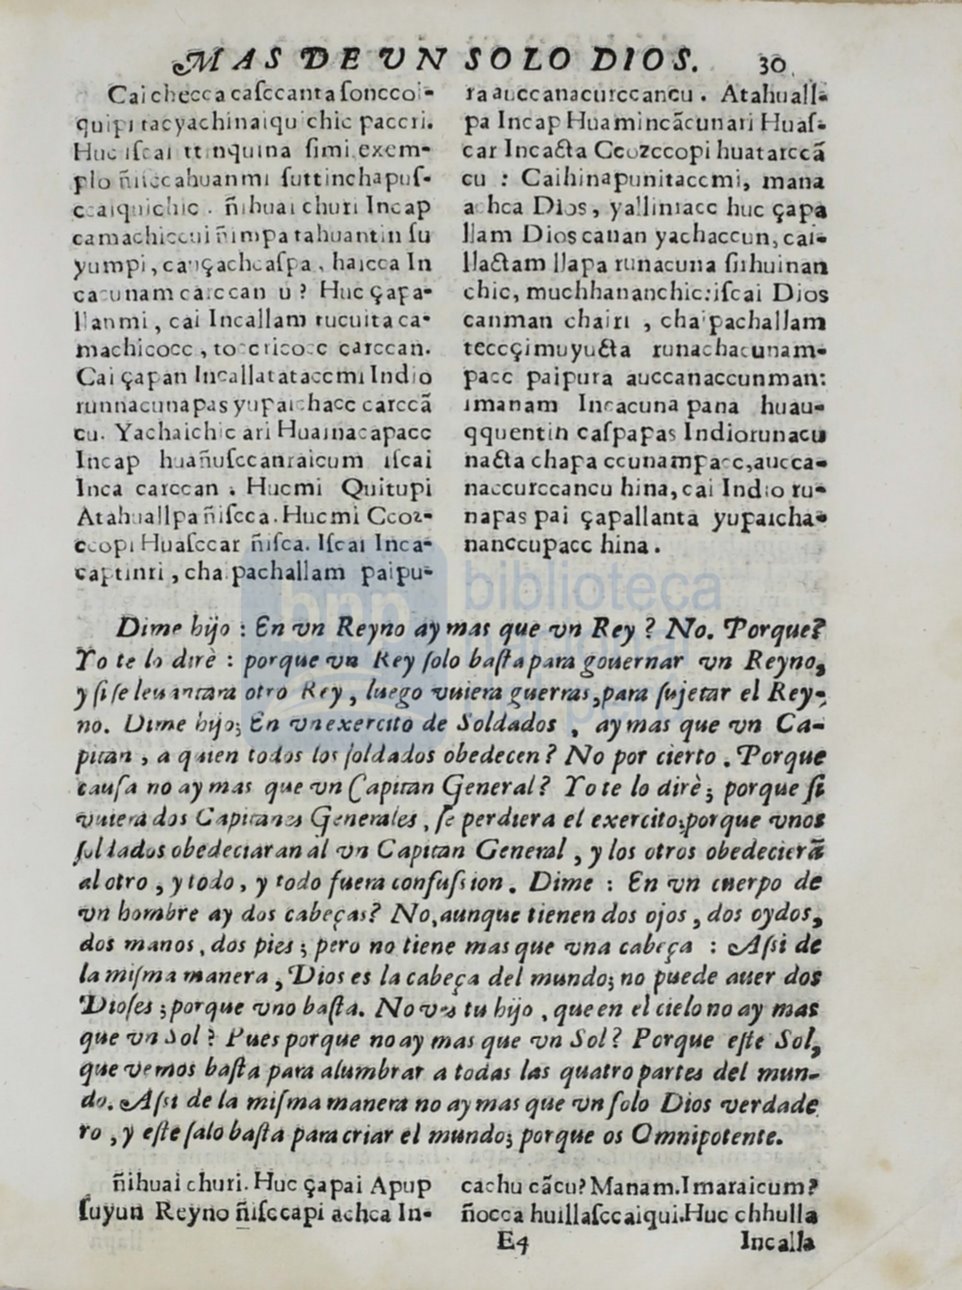 MAS DE VN SOLO DIOS. 30
Cai checca casccanta soncco-
quipi racyachinaiqu chic paccri.
Huc iscai ttinquina simi exem-
plo ñisccahuanmi suttinchapus-
ccaiquichic. ñihuai churi Incap
camachiccui ñimpa tahuantin su
yumpi, cauçachcaspa, haicca In
cacunam carccan u? Huc çapa-
llanmi, cai Incallam tucuita ca-
machicocc, tocricocc carccan.
Cai çapan Incallatataccmi Indio
runnacunapas yupaichacc carccã
cu. Yachaichic ari Huainacapacc
Incap huañusccanraicum iscai
Inca carccan. Hucmi Quitupi
Atahuallpa ñiscca. Hucmi Ccoz-
ccopi Huasccar ñisca. Iscai Inca-
captinri, cha pachallam paipu-
ra auccanacurccancu. Atahuall-
pa Incap Huamincãcunari Huas-
car Incacta Ccozccopi huatarccã
cu: Caihinapunitaccmi, mana
achca Dios, yallimacc huc çapa
llam Dios canan yachaccun, cai-
llactam llapa runacuna sinhuinan
chic, muchhananchic: iscai Dios
canman chairi, chaipachallam
tecceçimuyucta runachacunam-
pacc paipura auccanaccunman:
imanam Incacuna pana huau-
qquentin caspapas Indiorunacu
nacta chapa ccunampacc, aucca-
naccurccancu hina, cai Indio ru-
napas pai çapallanta yupaicha-
nanccupacc hina.
biblioteca
Dime hijo: En vn Reyno ay mas que vn Rey? No. Porque?
Yo te lo dirè: porque vn Rey solo basta para gouernar vn Reyno,
y si se leuantara otro Rey, luego vuiera guerras, para sujetar el Rey-
no. Dime hijo; En vn exercito de Soldados, ay mas que vn Ca-
pitan, a quien todos los soldados obedecen? No por cierto. Porque
causa no ay mas que vn Capitan General? Yo te lo dirè; porque si
vuiera dos Capitanes Generales, se perdiera el exercito; porque vnos
soldados obedeciaran al vn Capitan General, y los otros obedecierã
al otro, y todo, y todo fuera confussion. Dime: En vn cuerpo de
vn hombre ay dos cabeças? No, aunque tienen dos ojos, dos oydos,
dos manos, dos pies; pero no tiene mas que vna cabeça: Assi de
la misma manera, Dios es la cabeça del mundo; no puede auer dos
Dioses; porque vno basta. No ves tu hijo, que en el cielo no ay mas
que vn Sol? Pues porque no ay mas que vn Sol? Porque este Sol,
que vemos basta para alumbrar a todas las quatro partes del mun-
do. Assi de la misma manera no ay mas que vn solo Dios verdade
ro, y este salo basta para criar el mundo; porque os Omnipotente.
ñihuai churi. Huc çapai Apup
suyun Reyno ñisccapi achca In-
cachu cãcu? Manam. Imaraicum?
ñocca huillasccaiqui. Huc chhulla
E4 Incalla